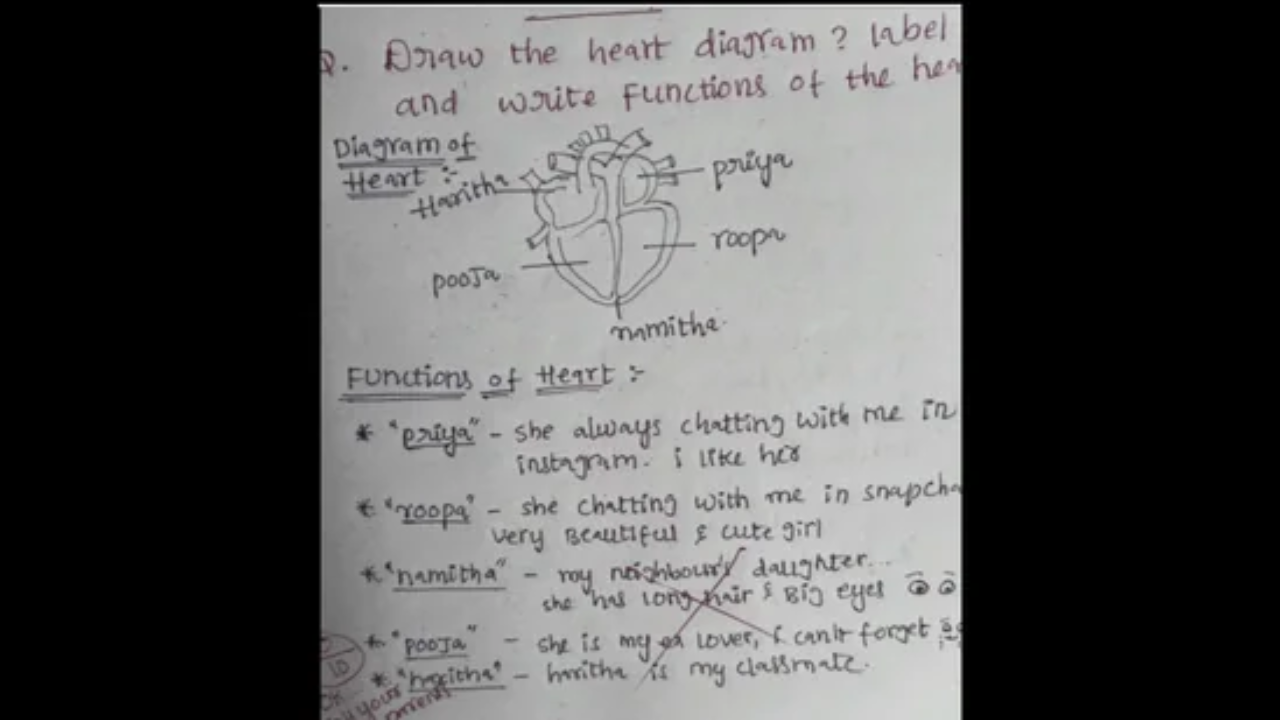 Q. Draw the heart diagram ? label
and write functions of the hea
Diagram of
Heart :-
Haritha
priya
roopa
pooja
namitha.
Functions of Heart :-
* "priya" - she always chatting with me in
instagram. i like her
* "roopa" - she chatting with me in snapcha
very Beautiful & cute girl
* "namitha" - my neighbour's daughter...
she has long hair & Big eyes
* "pooja" - she is my ex lover, i can't forget
10
* "haritha" - haritha is my classmate.
your
parents